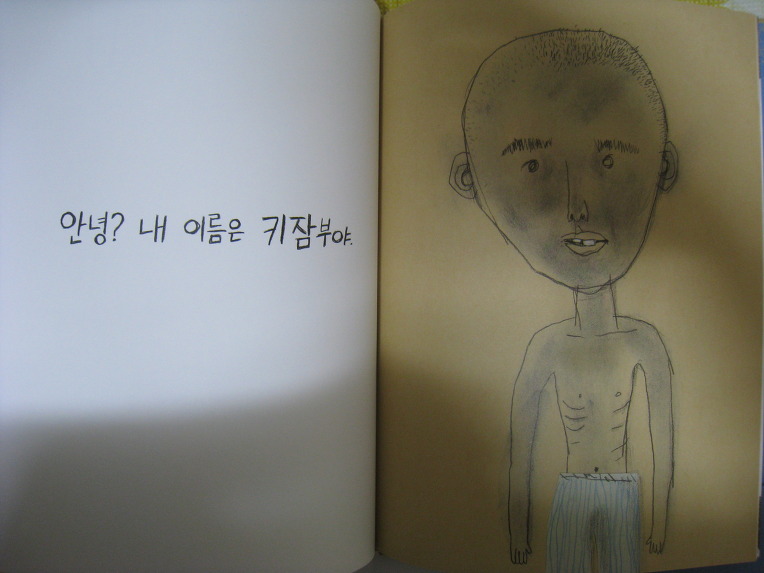 안녕? 내 이름은 키잠부야.